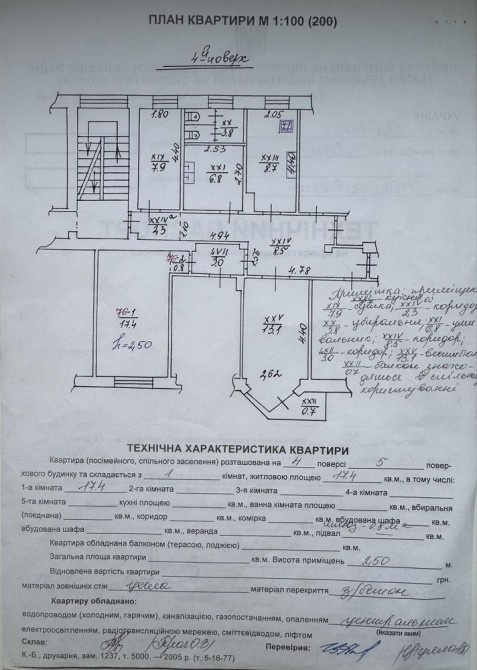 ПЛАН КВАРТИРИ М 1:100 (200)
4й поверх
1.80
2.05
XX
3.8
XIX
7.9
4.40
2.53
XXI
6.8
2.70
XXIII
8.7
4.40
XXIVa
2.3
4.94
XXIV
8.5
4.78
LVII
3.0
0.8
76-1
17.4
h=2,50
XXV
13.1
4.40
2,62
XXII
0.7
Примітка: приміщен
XIX
7.9
2.3 - коридор
XX
3.8 - убиральня; XXI
6.8 - уми
вальник; XXIV
8.5 - коридор;
LVII
3.0 - коридор; XXV
13.1
XXII
0.7 - балкон знахо-
диться в спільн
користуванні
ТЕХНІЧНА ХАРАКТЕРИСТИКА КВАРТИРИ
Квартира (посімейного, спільного заселення) розташована на 4 поверсі 5 повер-
хового будинку та складається з 1 кімнат, житловою площею 17.4 кв.м., в тому числі:
1-а кімната 17.4 2-га кімната 3-я кімната 4-а кімната
5-та кімната кухні площею кв.м., ванна кімната площею кв.м., вбиральня
(поєднана) кв.м., коридор кв.м., комірка кв.м. вбудована шафа кв.м.
вбудована шафа кв.м., веранда кв.м., підвал шлюз-0.8 м2 кв.м.
Квартира обладнана балконом (терасою, лоджією) кв.м.
Загальна площа квартири кв.м. Висота приміщень 2,50 м.
Відновлена вартість квартири грн.
матеріал зовнішніх стін цегла матеріал перекриття з/бетон
Квартиру обладнано:
водопроводом (холодним, гарячим), каналізацією, газопостачанням, опаленням центральним
(вказати яким)
електроосвітленням, радіотрансляційною мережею, сміттєвідводом, ліфтом
Склав: Перевірив:
К.-Б., друкарня, зам. 1237, т. 5000. –2005 р. (т. 5-16-77)